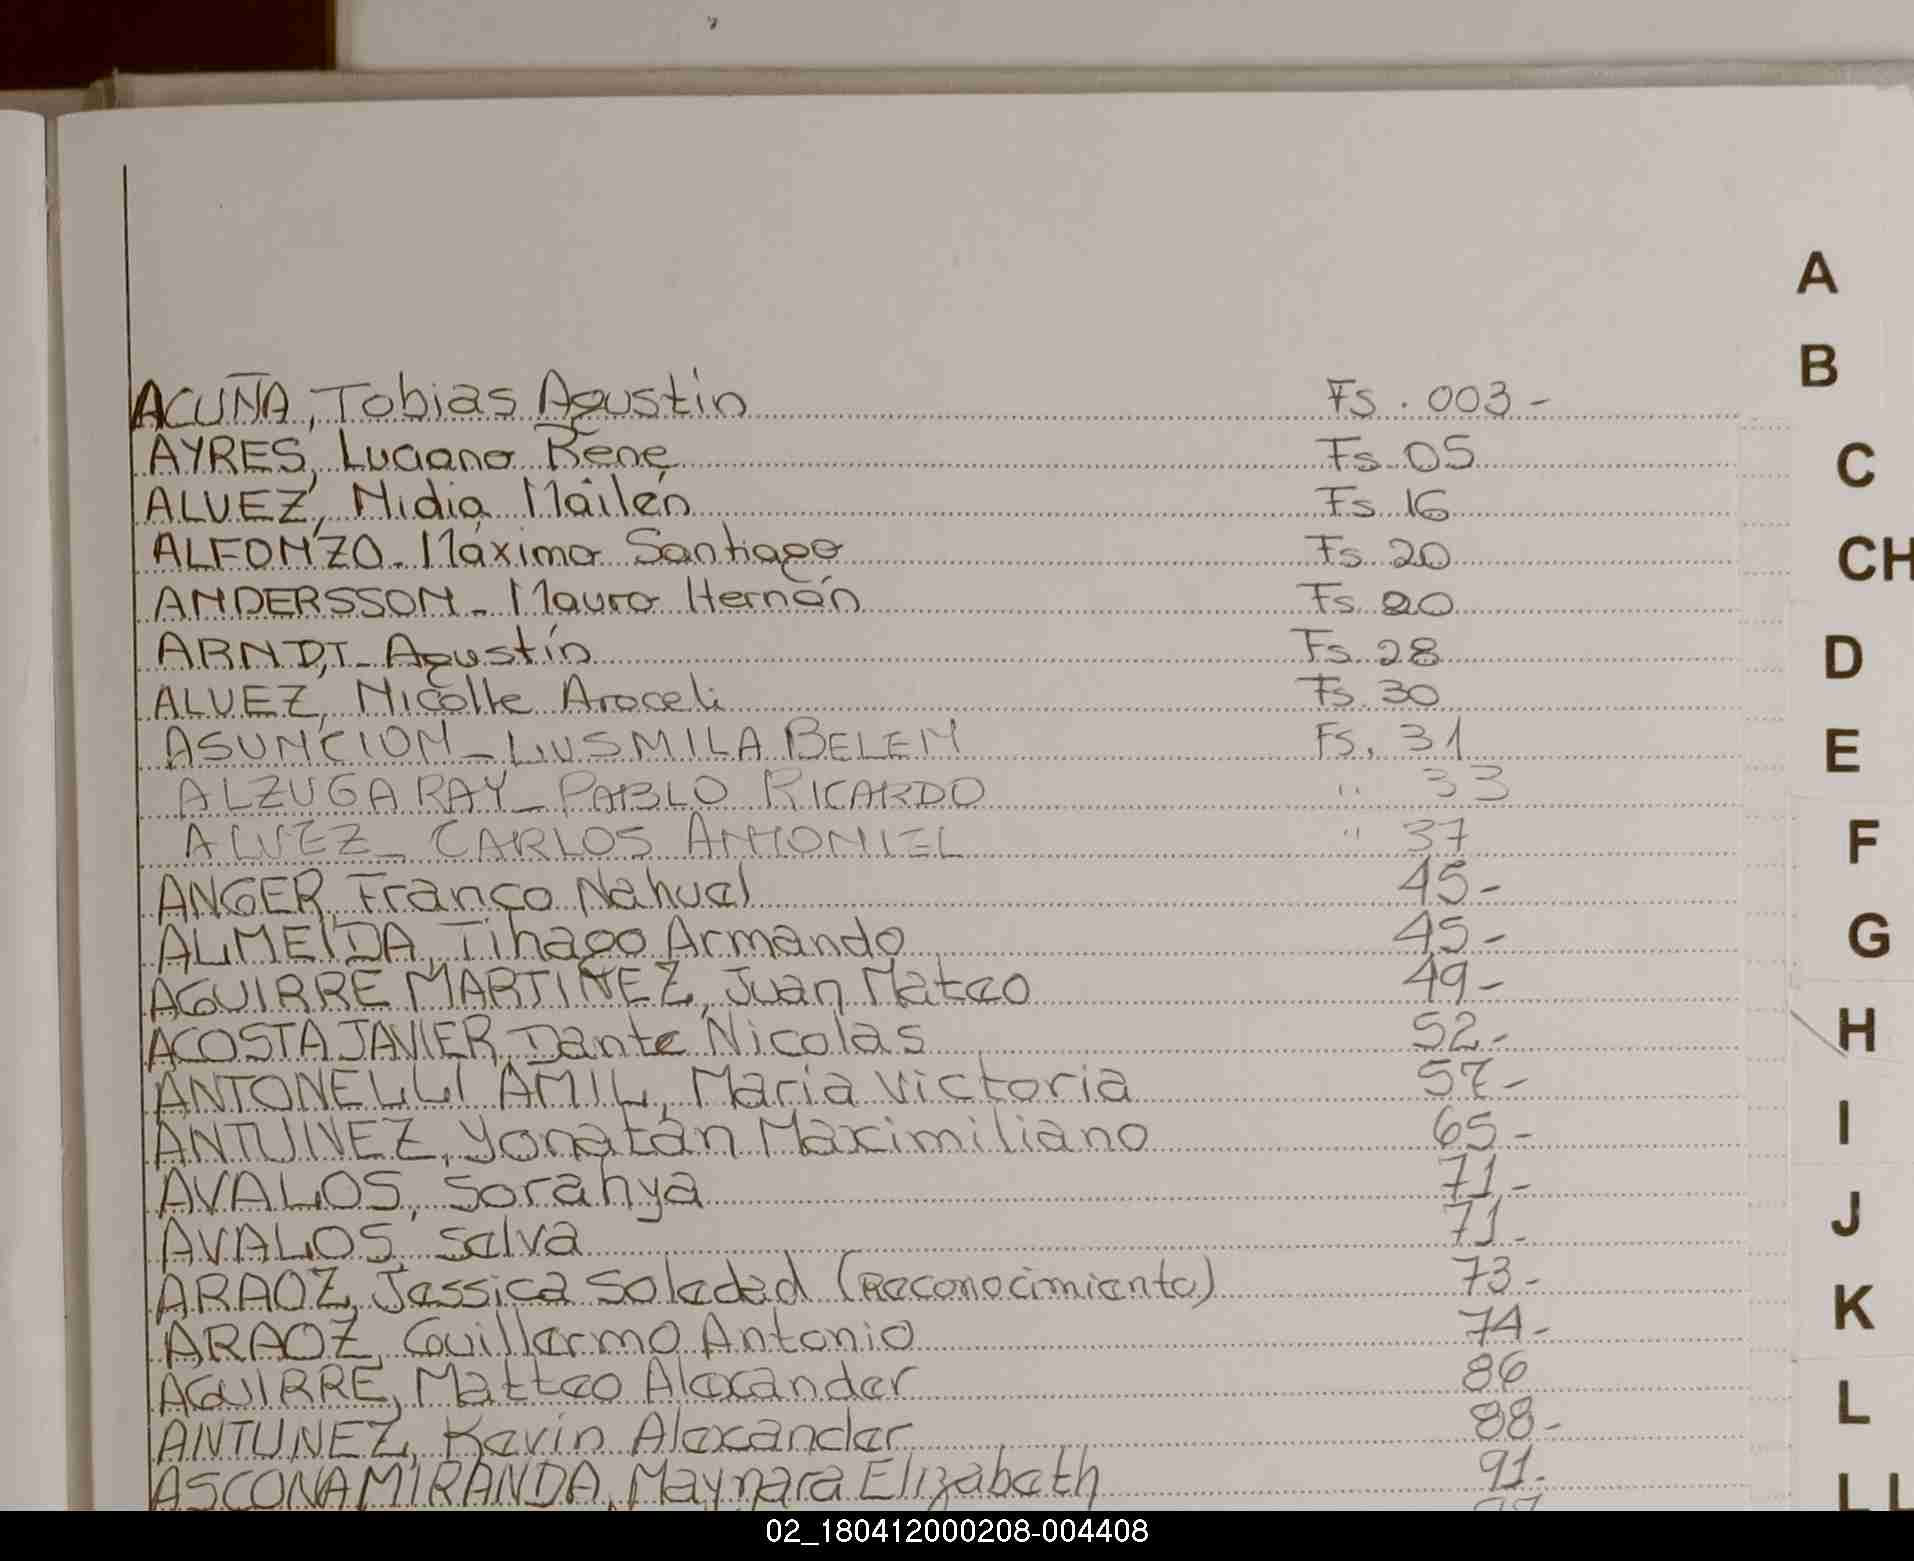 A
B
ACUÑA, Tobias Agustín Fs. 003-
AYRES, Luciano René Fs 05
C
ALVEZ, Nidia Mailén Fs 16
ALFONZO- Máximo Santiago Fs 20
CH
ANDERSSON- Mauro Hernán Fs 20
ARNDT- Agustín Fs 28
D
ALVEZ, Nicolle Araceli Fs 30
ASUNCION- LUSMILA BELEN FS. 31
E
ALZUGARAY- PABLO RICARDO " 33
ALVEZ- CARLOS ANTONIEL " 37
F
ANGER, Franco Nahuel 45-
ALMEIDA, Tihago Armando 45-
G
AGUIRRE MARTINEZ, Juan Mateo 49-
ACOSTA JAVIER, Dante Nicolas 52-
H
ANTONELLI AMIL, Maria Victoria 57-
ANTUNEZ, Yonatán Maximiliano 65-
I
AVALOS, Sorahya 71,-
AVALOS, Selva 71-
J
ARAOZ, Jessica Soledad (Reconocimiento) 73-
K
ARAOZ, Guillermo Antonio 74-
AGUIRRE, Matteo Alexander 86
L
ANTUNEZ, Kevin Alexander 88-
ASCONA MIRANDA, Maynara Elizabeth 91-
LL
02_180412000208-004408